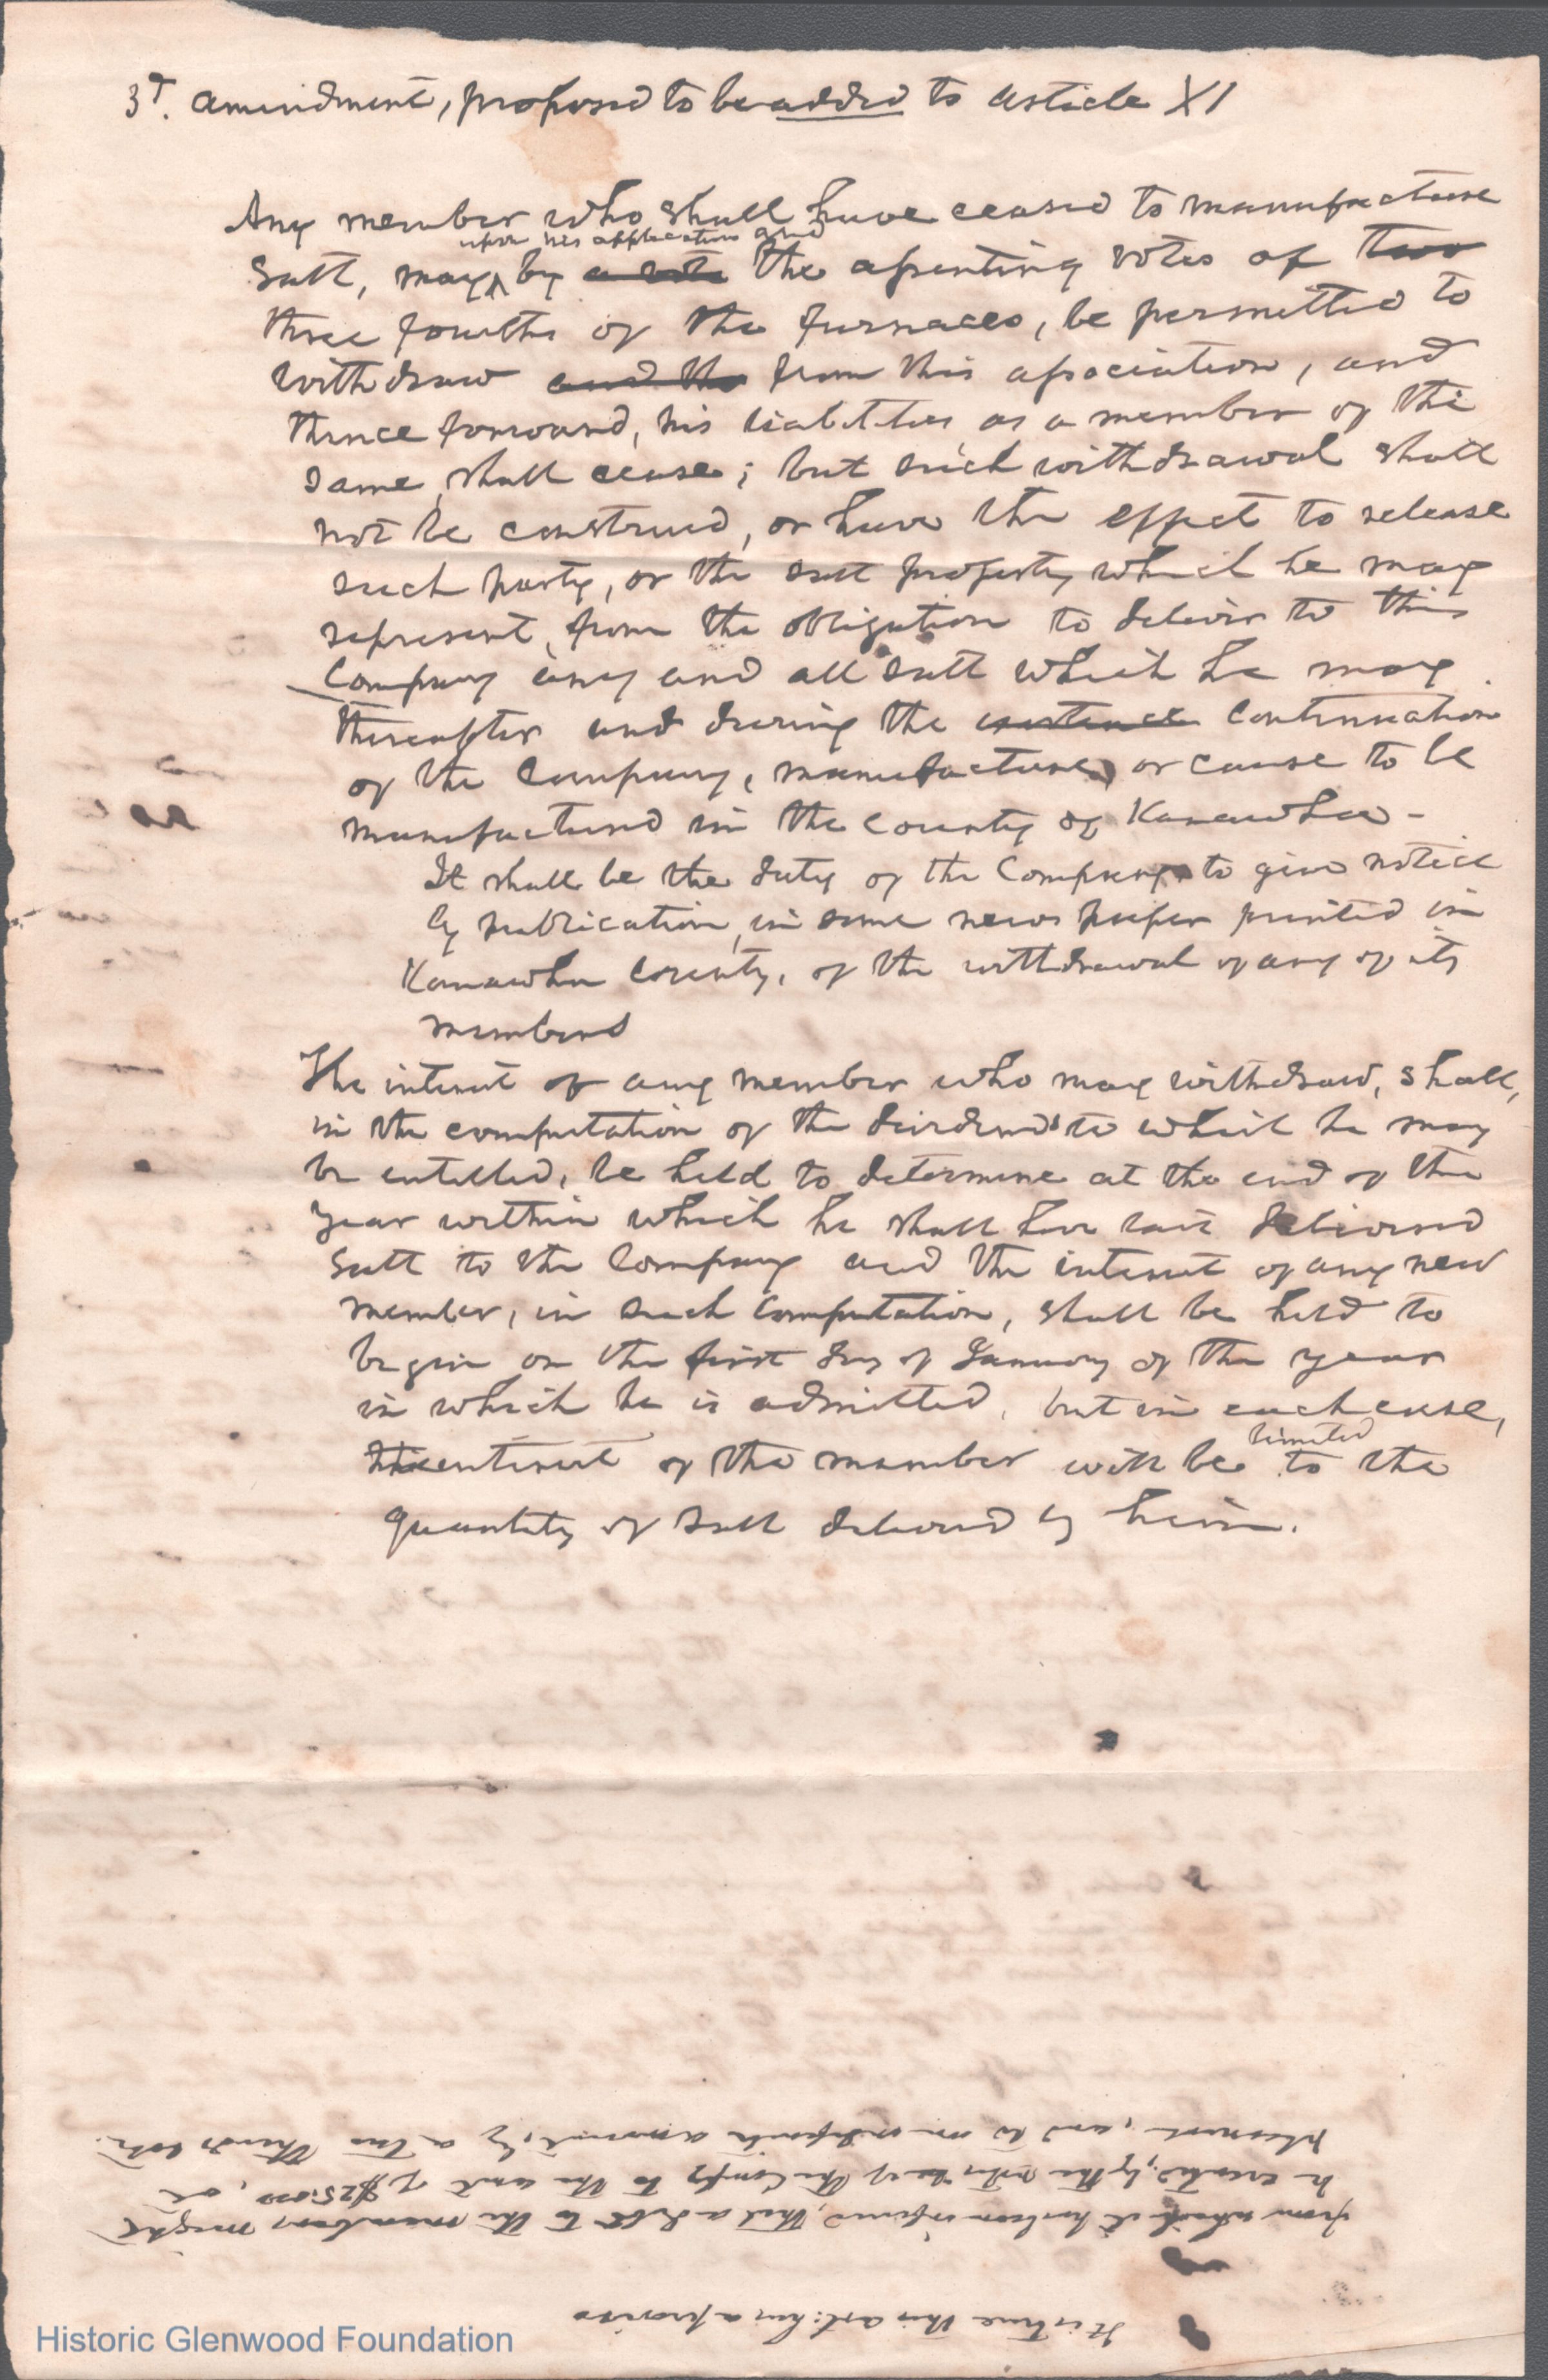 3d. amendment, proposed to be added to article XI
Any member who shall have ceased to manufacture
upon his application and
Salt, may, by a vote the assenting votes of two
three fourths of the furnaces, be permitted to
withdraw and the from this association, and
thence forward, his liabilities as a member of the
same, shall cease; but such withdrawal shall
not be construed, or have the effect to release
such party, or the salt property which he may
represent, from the obligation to deliver to this
Company any and all salt which he may
thereafter and during the existence continuation
of the Company, manufacture, or cause to be
manufactured in the county of Kanawha -
It shall be the duty of the Company to give notice
by publication, in some news paper printed in
Kanawha County, of the withdrawal of any of its
members
The interest of any member who may withdraw, shall,
in the computation of the dividends to which he may
be entitled, be held to determine at the end of the
year within which he shall have last delivered
salt to the Company and the interest of any new
member, in such computation, shall be held to
begin on the first day of January of the year
in which he is admitted, but in each case,
limited
the interest of the member will be to the
quantity of salt delivered by him.
It is true this art: has a proviso
from which it has been inferred, that a debt to the members might
be created, by the votes of the Compy to the amt of $25.000, at
pleasure, and to an indefinite amount, by a two thirds vote.
Historic Glenwood Foundation